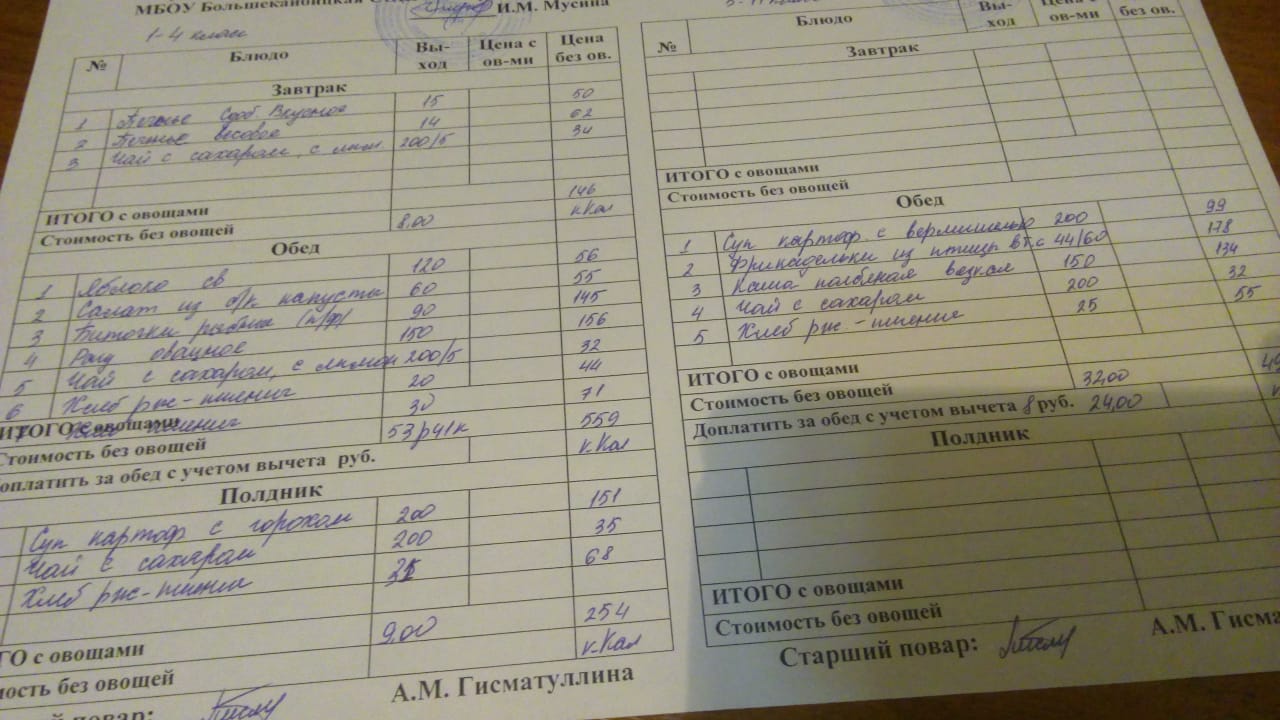 МБОУ Большекайбицкая
И.М. Мусина
1-4 классы
№ Блюдо Вы-ход Цена с ов-ми Цена без ов.
Завтрак
1 Печенье Сдоб Вкусное 15 50
2 Печенье весовое 14 62
3 Чай с сахаром, с лим. 200/5 34
ИТОГО с овощами 146
Стоимость без овощей 8,00 кКал
Обед
1 Яблоко св 120 56
2 Салат из б/к капусты 60 55
3 Биточки рыбные (п/ф) 90 145
4 Рагу овощное 150 156
5 Чай с сахаром, с лимон 200/5 32
6 Хлеб рж-пшенич 20 44
7 Хлеб пшенич 30 71
ИТОГО с овощами 53р41к 559
Стоимость без овощей кКал
Доплатить за обед с учетом вычета руб.
Полдник
Суп картоф с горохом 200 151
Чай с сахаром 200 35
Хлеб рж-пшенич 31 68
ИТОГО с овощами 9,00 254
Стоимость без овощей кКал
А.М. Гисматуллина
повар:
5-11 классы
№ Блюдо Цена с ов-ми без ов.
Завтрак
ИТОГО с овощами
Стоимость без овощей
Обед
1 Суп картоф с вермишелью 200 99
2 Фрикадельки из птицы в т.с 44/60 178
3 Каша полбяная вязкая 150 134
4 Чай с сахаром 200 32
5 Хлеб рж-пшенич 25 55
ИТОГО с овощами
Стоимость без овощей 32,00
Доплатить за обед с учетом вычета 8 руб. 24,00
Полдник
ИТОГО с овощами
Стоимость без овощей
Старший повар: А.М. Гисма